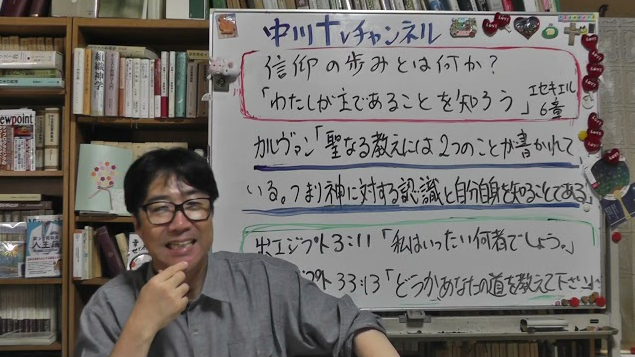 中川TVチャンネル
信仰の歩みとは何か?
「わたしが主であることを知ろう」エゼキエル6章
カルヴァン「聖なる教えには2つのことが書かれて
いる。つまり神に対する認識と自分自身を知ることである」
出エジプト3:11「私はいったい何者でしょう。」
プト33:13「どうかあなたの道を教えて下さい」
組織神学
Viewpoint